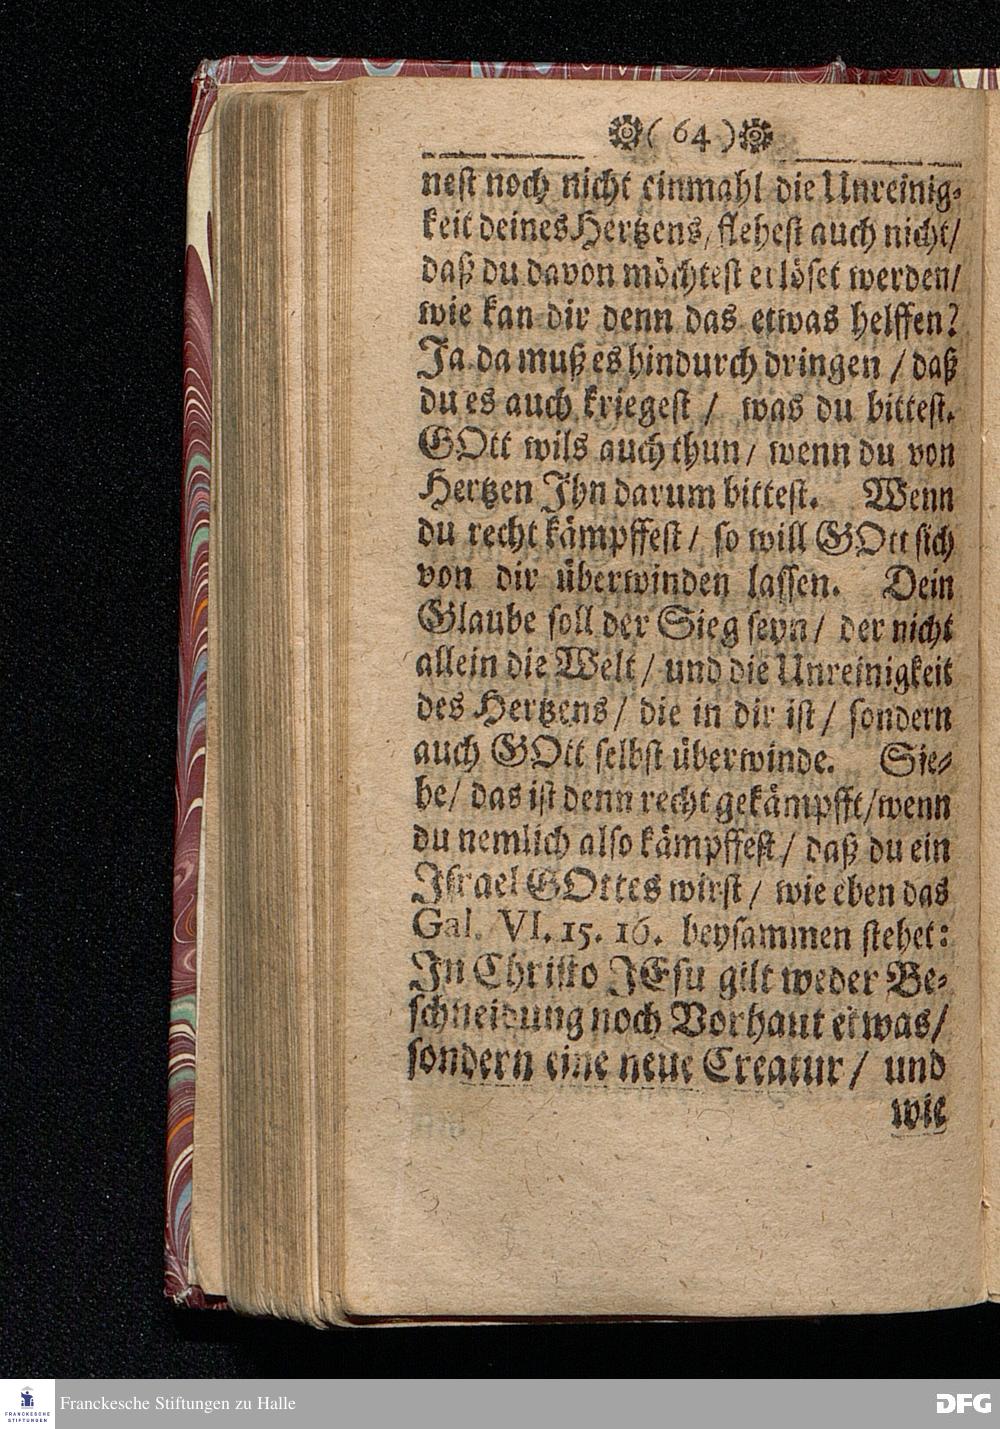 ( 64 )
nest noch nicht einmahl die Unreinig-
keit deines Hertzens, flehest auch nicht/
daß du davon möchtest erlöset werden/
wie kan dir denn das etwas helffen?
Ja da muß es hindurch dringen / daß
du es auch kriegest / was du bittest.
GOtt wils auch thun/ wenn du von
Hertzen Ihn darum bittest. Wenn
du recht kämpffest/ so will GOtt sich
von dir überwinden lassen. Dein
Glaube soll der Sieg seyn/ der nicht
allein die Welt/ und die Unreinigkeit
des Hertzens/ die in dir ist/ sondern
auch GOtt selbst überwinde. Sie-
he/ das ist denn recht gekämpfft/wenn
du nemlich also kämpffest/ daß du ein
Israel GOttes wirst/ wie eben das
Gal. VI. 15. 16. beysammen stehet:
In Christo JEsu gilt weder Be-
schneidung noch Vorhaut etwas/
sondern eine neue Creatur/ und
wie
FRANCKESCHE
STIFTUNGEN
Franckesche Stiftungen zu Halle
DFG